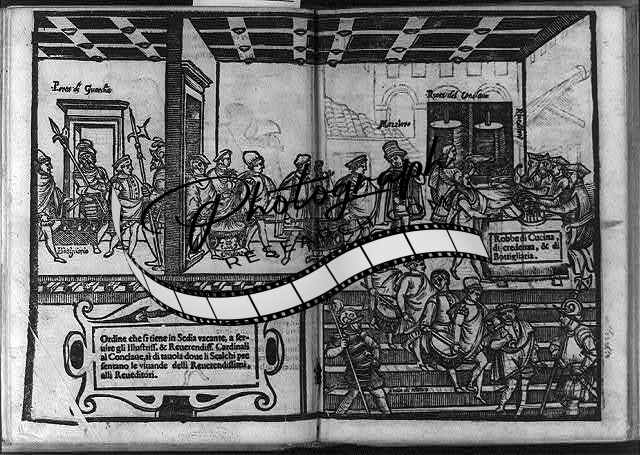 Porta di Guardia
Mazziero
Rota del Conclave
Photograph
RESEARCH
Robbe di Cucina
di credenza, & di
Bottigliaria.
Ordine che si tiene in Sedia vacante, a ser-
uire gli Illustriss. & Reuerendiss. Cardinali
al Conclaue, si di tauola doue li Scalchi pre
sentano le viuande delli Reuerendissimi,
alli Reueditori.